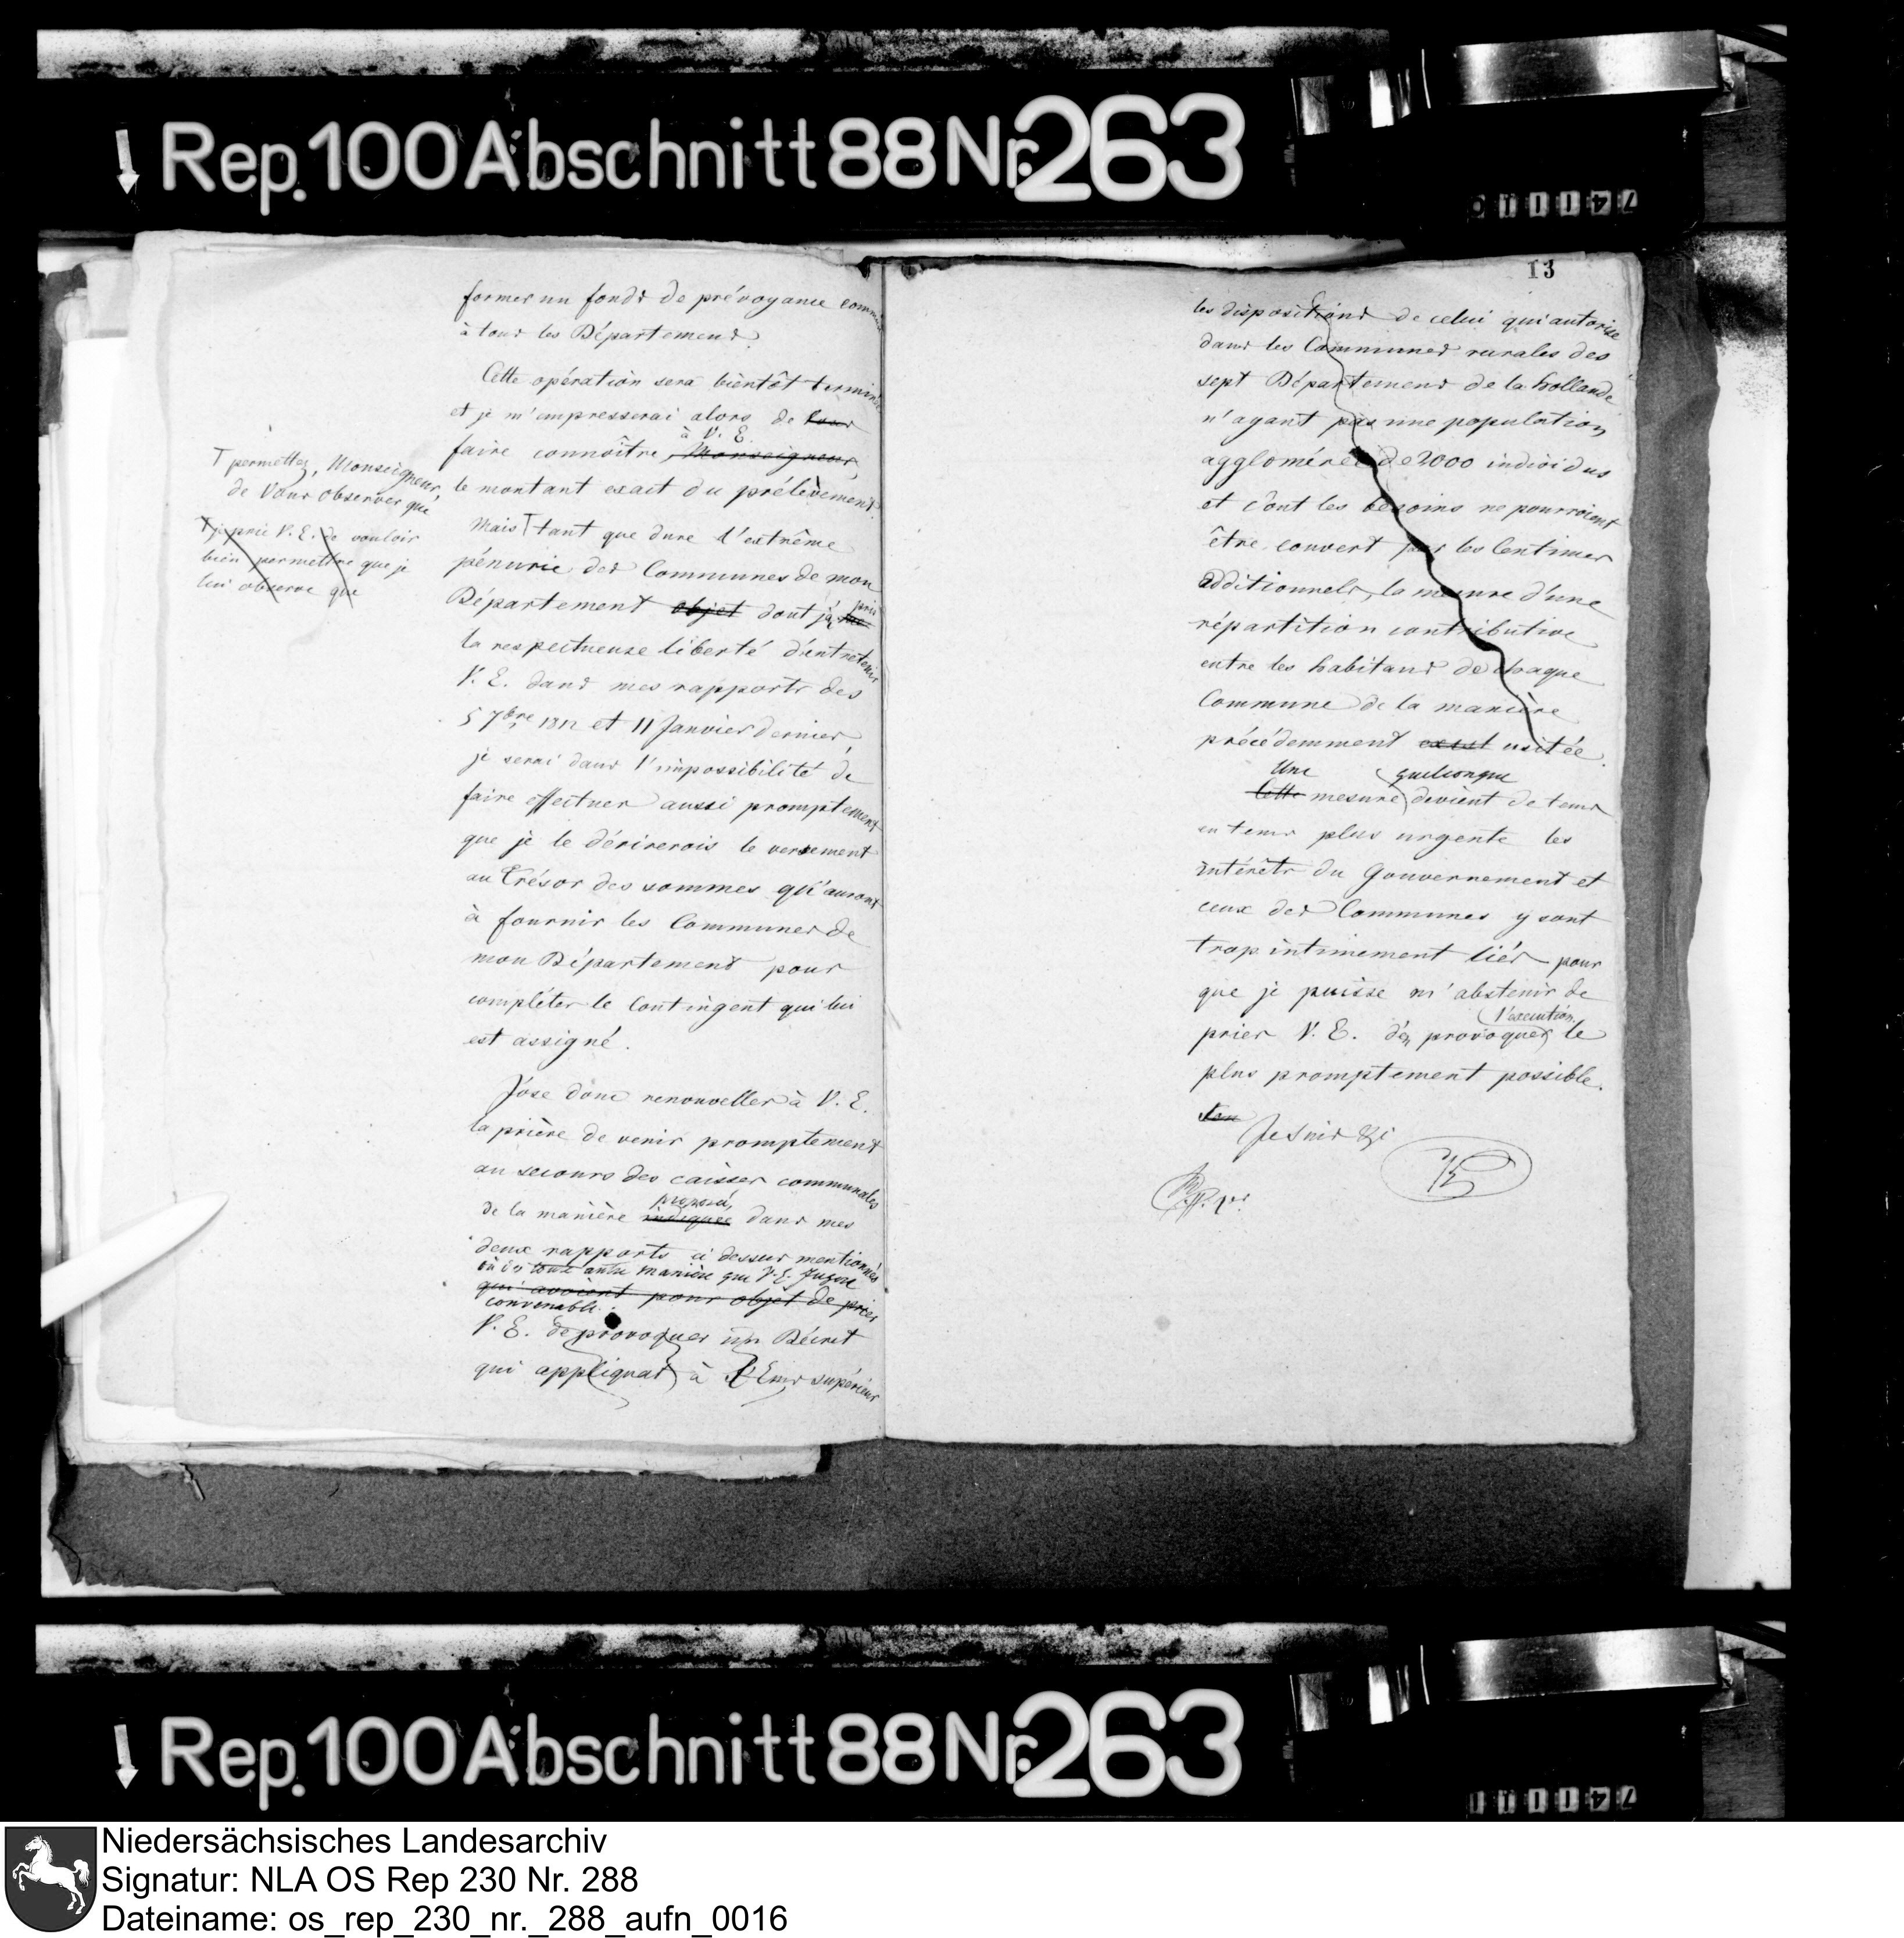 Rep. 100 Abschnitt 88 Nr. 263
former un fonds de prévoyance commun
à tous les Départemens.
Cette opération sera bientôt terminée
et je m'empresserai alors de
à V. E.
faire connoître, Monseigneur,
le montant exact du prélèvement.
Mais T tant que dure l'extrême
pénurie des Communes de mon
Département objet dont j'ai pris
la respectueuse liberté d'entretenir
V. E. dans mes rapports des
5 7bre 1812 et 11 Janvier dernier
je serai dans l'impossibilité de
faire effectuer aussi promptement
que je le désirerois le versement
au Trésor des sommes qu'auront
à fournir les Communes de
mon Département pour
compléter le Contingent qui lui
est assigné.
J'ose donc renouveller à V. E.
la prière de venir promptement
au secours des caisses communales
proposée
de la manière indiquée dans mes
deux rapports ci dessus mentionnés
où en toute autre manière que V. E. jugera
qui avoient pour objet de prier
convenable.
V. E. de provoquer un Décret
qui appliquat à l'Ems supérieur
T permettez, Monseigneur,
de Vous observer que
T je prie V. E. de vouloir
bien permettre que je
lui observe que
13
les dispositions de celui qui autorise
dans les Communes rurales des
sept Départemens de la hollande
n'ayant pas une population
agglomérée de 2000 individus
et dont les besoins ne pourroient
être couvert par les Centimes
additionnels, la mesure d'une
répartition contributive
entre les habitans de chaque
Commune de la manière
précédemment usitée.
Une quelconque
Cette mesure devient de tems
en tems plus urgente les
intérêts du Gouvernement et
ceux des Communes y sont
trop intimement liés pour
que je puisse m'abstenir de
l'execution
prier V. E. d'en provoquer le
plus promptement possible.
Je suis &c
Rep. 100 Abschnitt 88 Nr. 263
Niedersächsisches Landesarchiv
Signatur: NLA OS Rep 230 Nr. 288
Dateiname: os_rep_230_nr._288_aufn_0016